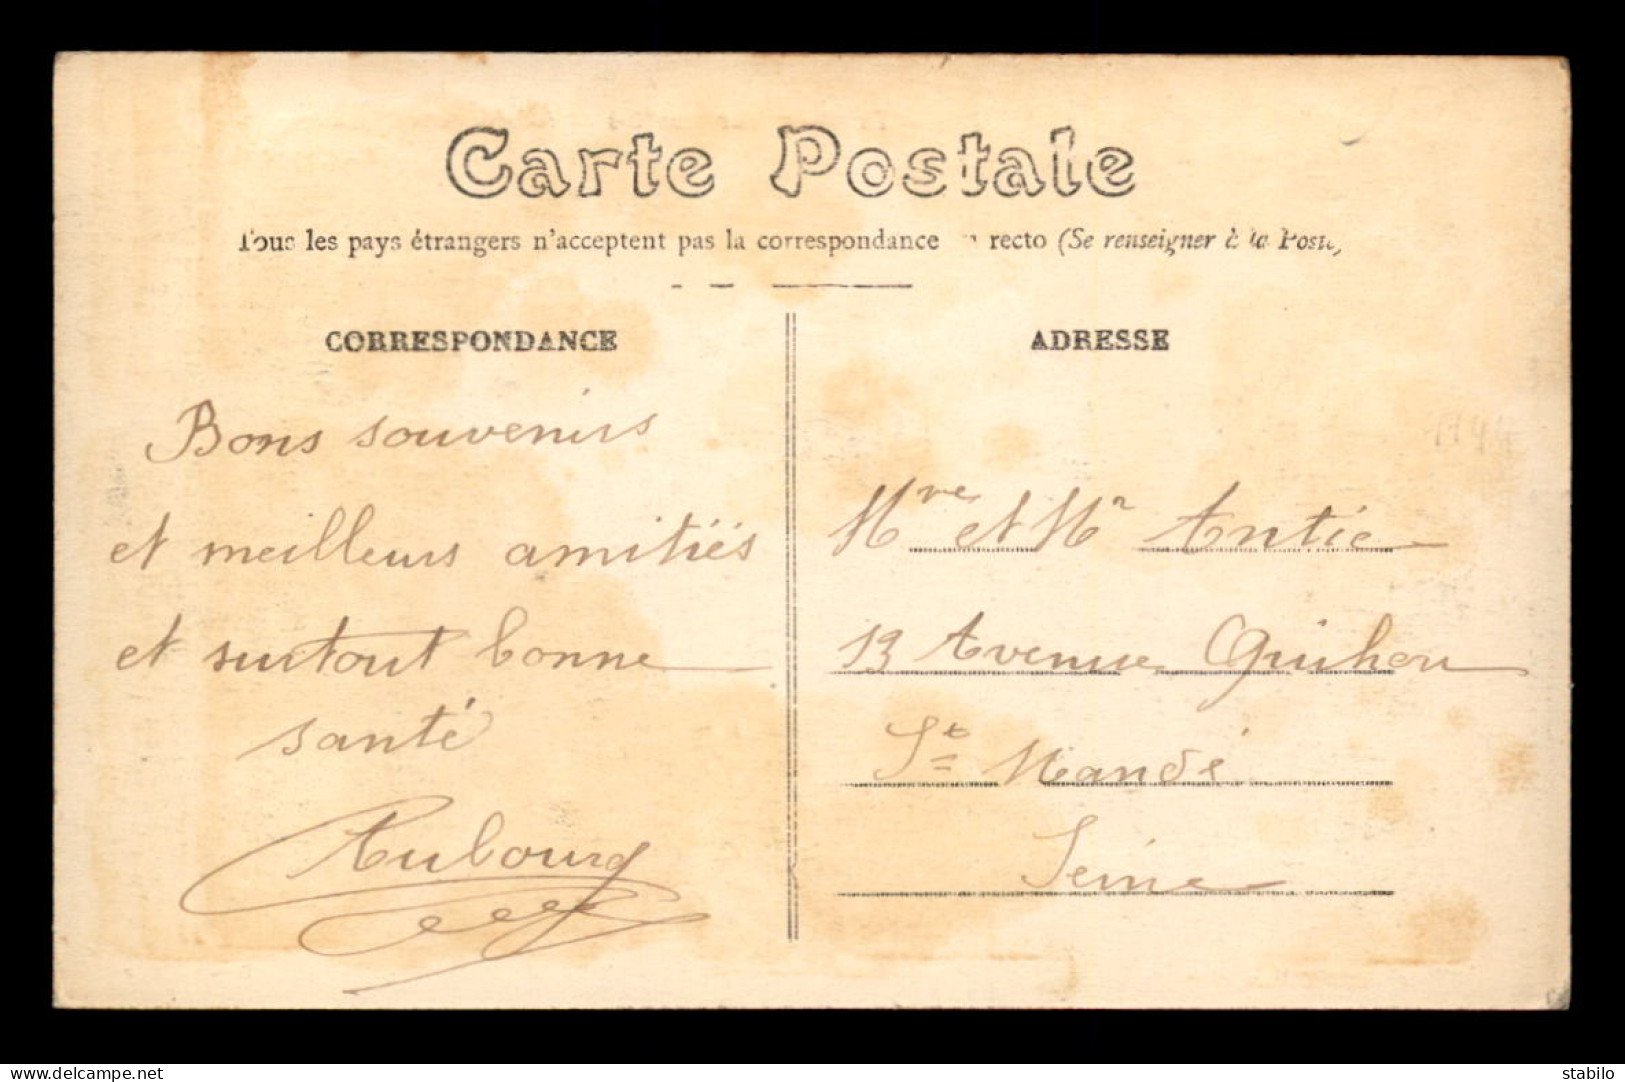 Carte Postale
Tous les pays étrangers n'acceptent pas la correspondance recto (Se renseigner à la Poste)
CORRESPONDANCE
Bons souvenirs
et meilleurs amitiés
et surtout bonne
santé
Aubourg
ADRESSE
Mre et Mr Antie
13 Avenue Quihou
St Mandé
Seine
www.delcampe.net
stabilo